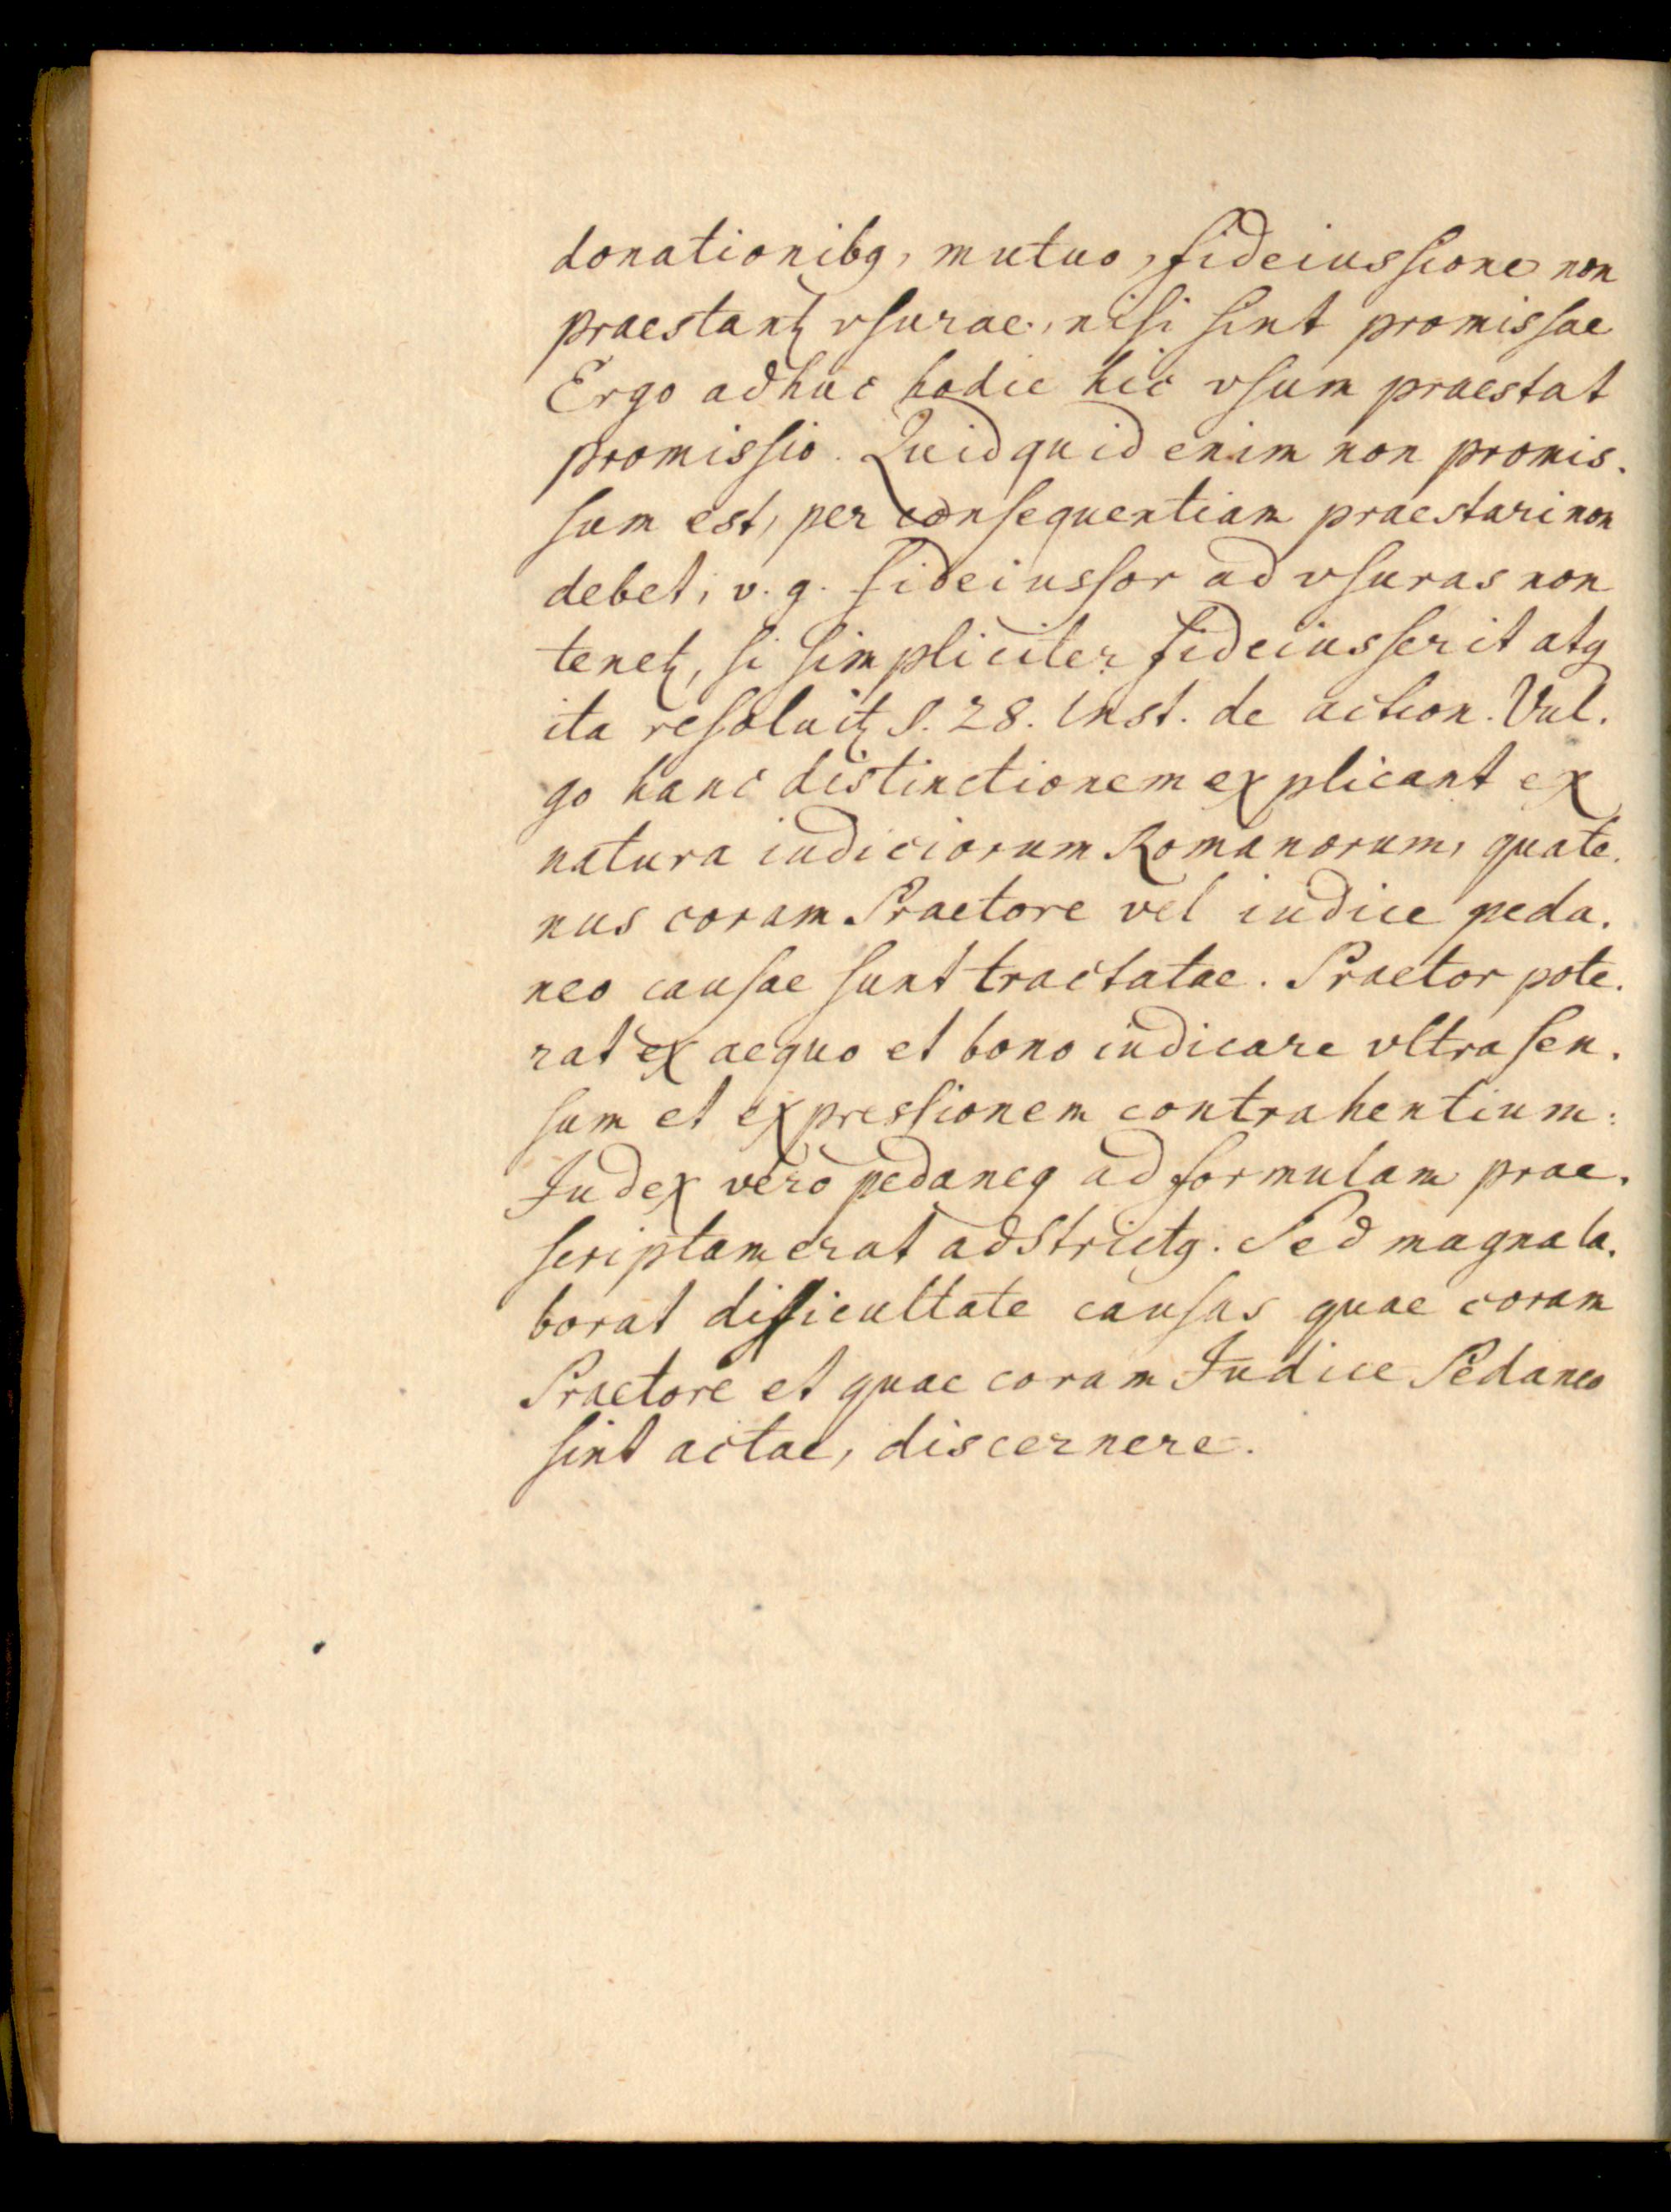 donationibꝫ, mutuo, fideiusſione non
praestantꝫ vſurae, niſi ſint promisſae
Ergo adhuc hodie hic vſum praestat
promisſio. Quidquid enim non promis.
ſum est, per conſequentiam praestari non
debet, v. g. fideiusſor ad vſuras non
tenetꝫ, ſi ſimpliciter fideiusſerit atqꝫ
ita reſoluitꝫ §. 28. Inst. de action. Vul.
go hanc distinctionem explicant ex
natura iudiciorum Romanorum, quate.
nus coram Praetore vel iudice peda.
neo cauſae ſunt tractatae. Praetor pote.
rat ex aequo et bono iudicare vltra ſen.
ſum et expresſionem contrahentium:
Judex vero pedaneꝫ ad formulam prae.
ſcriptam erat adstrictꝫ. Sed magna la.
borat difficultate cauſas quae coram
Praetore et quae coram Judice Pedaneo
ſint actae, discernere.